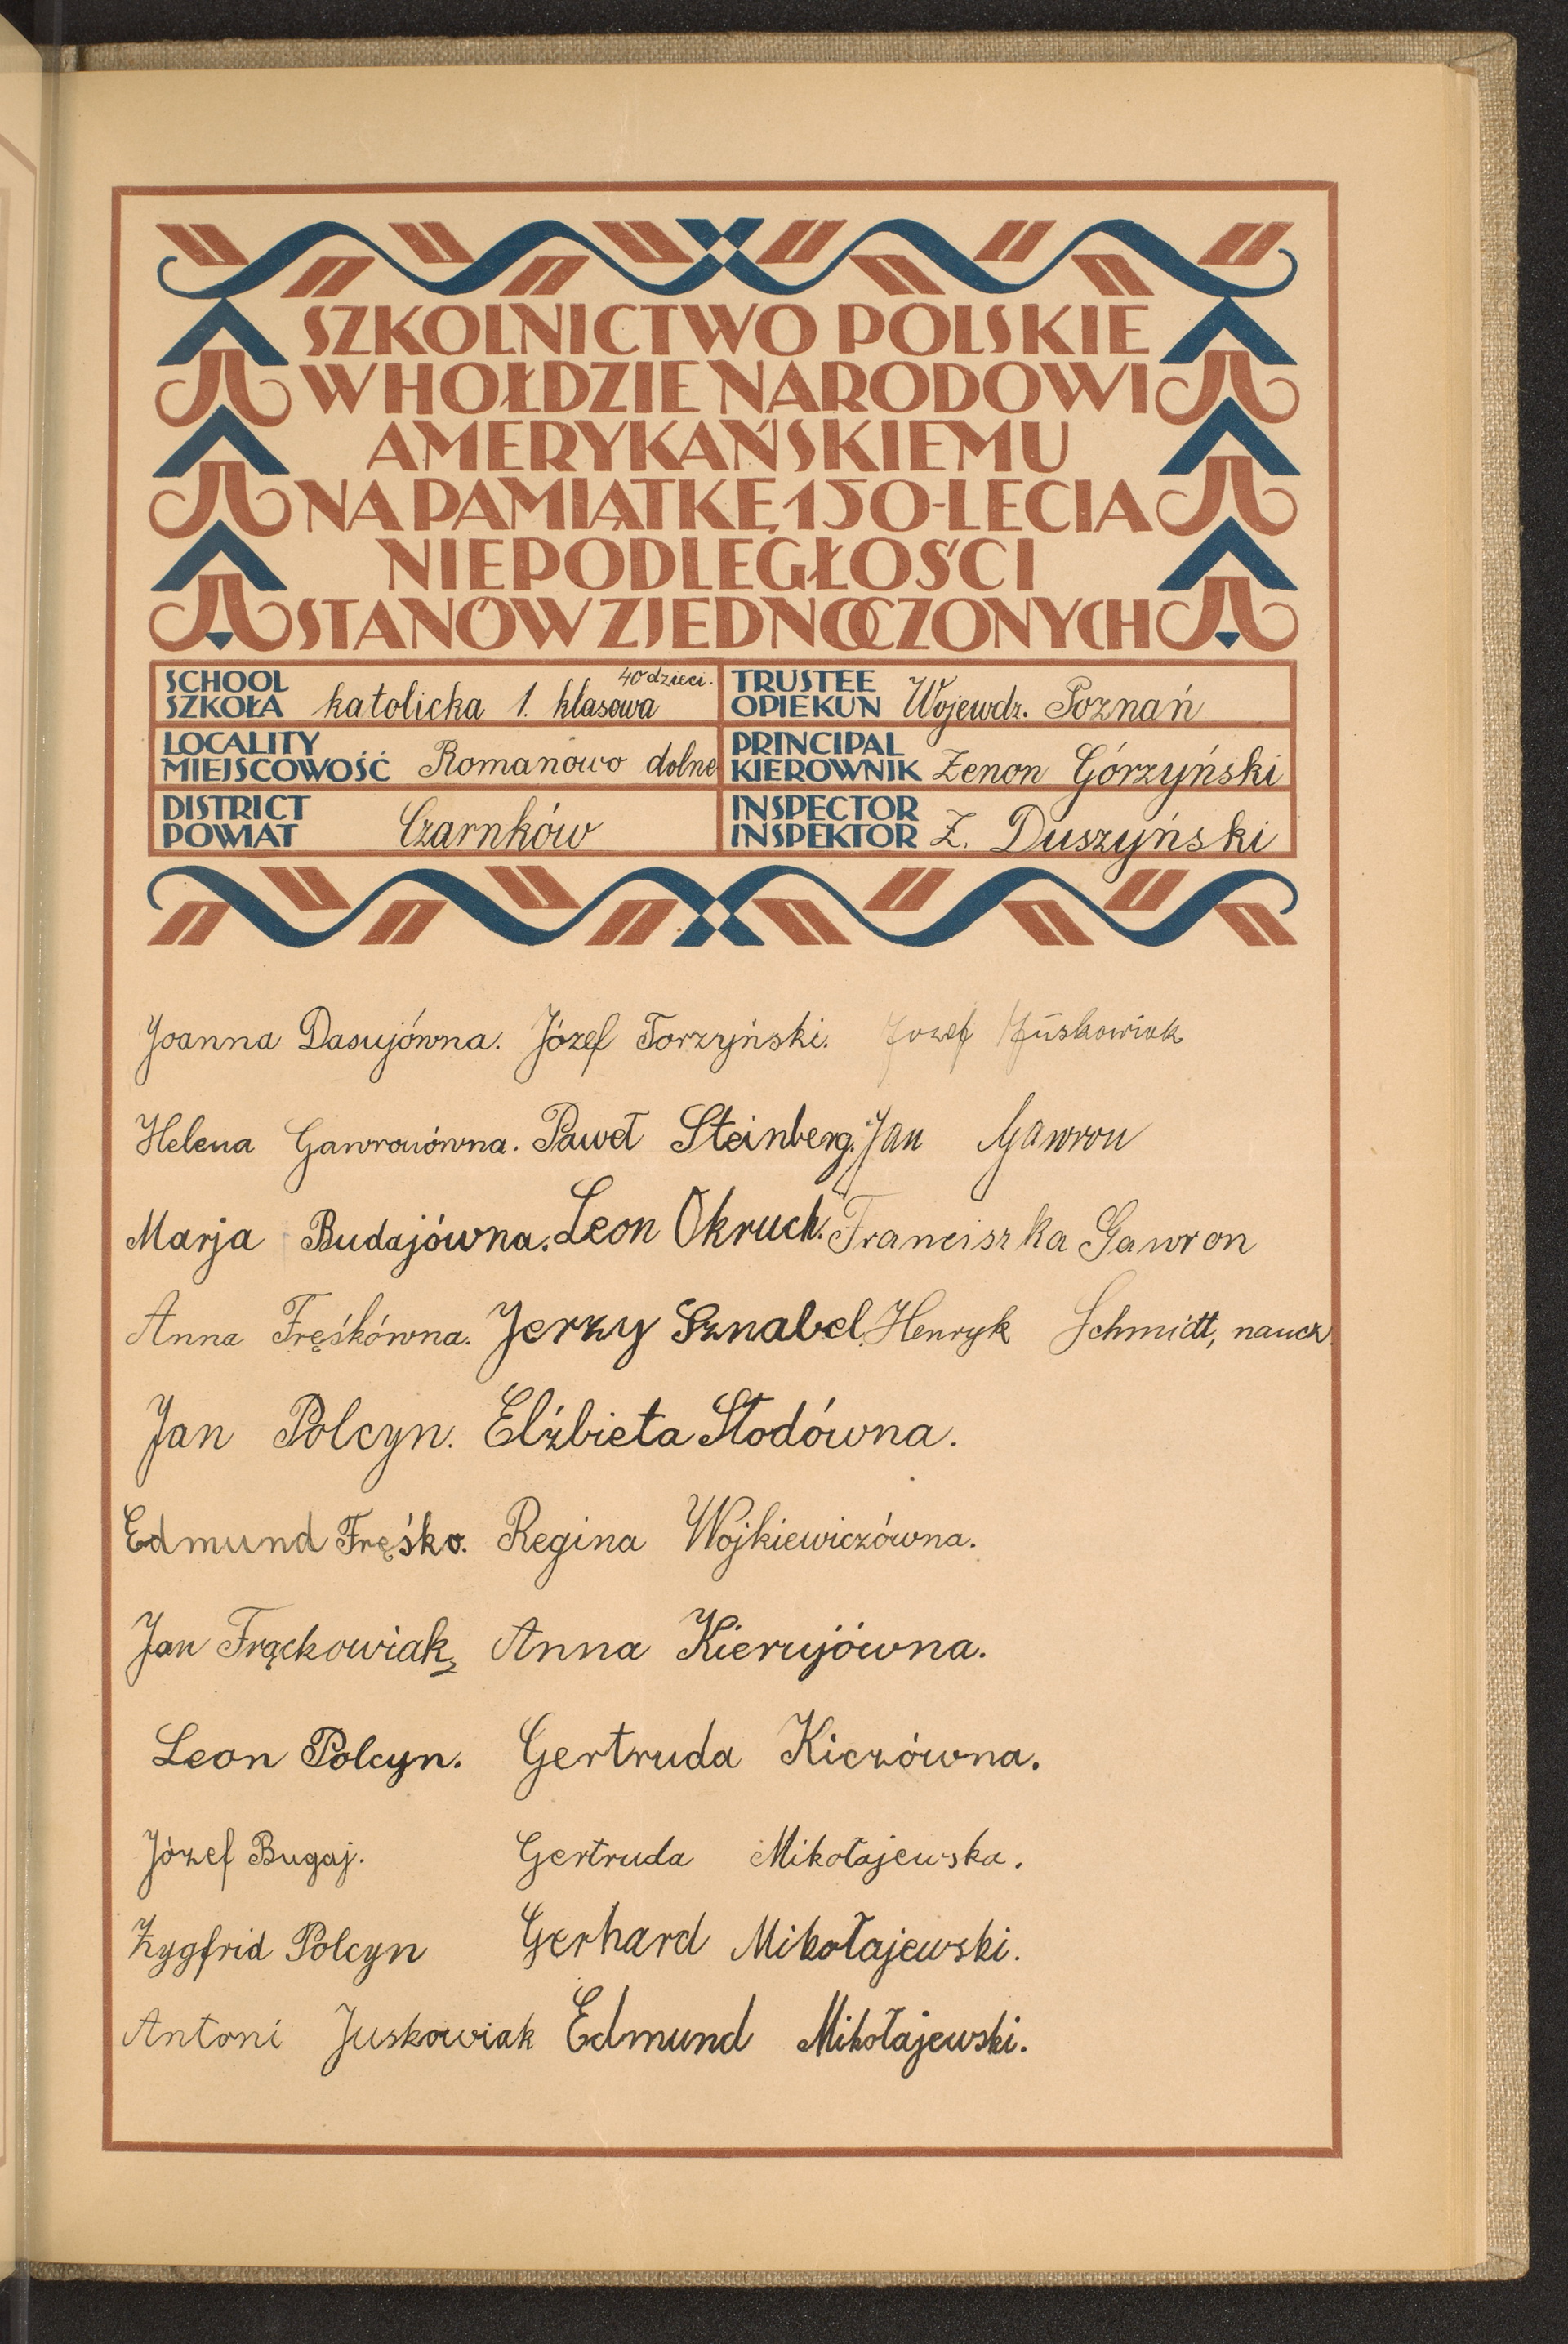 SZKOLNICTWO POLSKIE
W HOŁDZIE NARODOWI
AMERYKAŃSKIEMU
NA PAMIĄTKĘ 150-LECIA
NIEPODLEGŁOŚCI
STANÓW ZJEDNOCZONYCH
SCHOOL
SZKOŁA katolicka 1. klasowa 40 dzieci.
TRUSTEE
OPIEKUN Wojewdz. Poznań
LOCALITY
MIEJSCOWOŚĆ Romanowo dolne
PRINCIPAL
KIEROWNIK Zenon Górzyński
DISTRICT
POWIAT Czarnków
INSPECTOR
INSPEKTOR Z. Duszyński
Joanna Dasujówna. Józef Torzyński. Jozef
Helena Gawronówna. Paweł Steinberg. Jan Gawron
Marja Budajówna. Leon Okruch. Franciszka Gawron
Anna Fręśkówna. Jerzy Sznabel. Henryk Schmidt, naucz.
Jan Polcyn. Elżbieta Stodówna.
Edmund Fręśko. Regina Wojkiewiczówna.
Jan Frąckowiak Anna Kierujówna.
Leon Polcyn. Gertruda Kiczówna.
Józef Bugaj. Gertruda Mikołajewska.
Zygfrid Polcyn Gerhard Mikołajewski.
Antoni Juskowiak Edmund Mikołajewski.